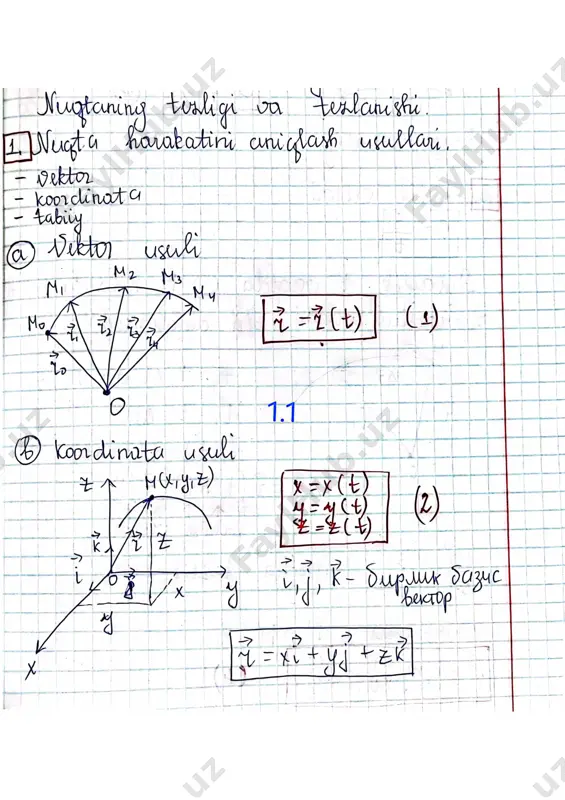 Nuqtaning tezligi va tezlanishi.
1. Nuqta harakatini aniqlash usullari.
- vektor
- koordinata
- tabiiy
a Vektor usuli
M₀ M₁ M₂ M₃ M₄
r⃗₀ r⃗₁ r⃗₂ r⃗₃ r⃗₄
O
r⃗ = r⃗(t) (1)
1.1
b Koordinata usuli
z M(x,y,z)
k⃗ r⃗ z
i⃗ O j⃗ x y
y
x
x = x(t)
y = y(t) (2)
z = z(t)
i⃗, j⃗, k⃗ - бирлик базис
вектор
r⃗ = xi⃗ + yj⃗ + zk⃗
FaylHub.uz
FaylHub.uz